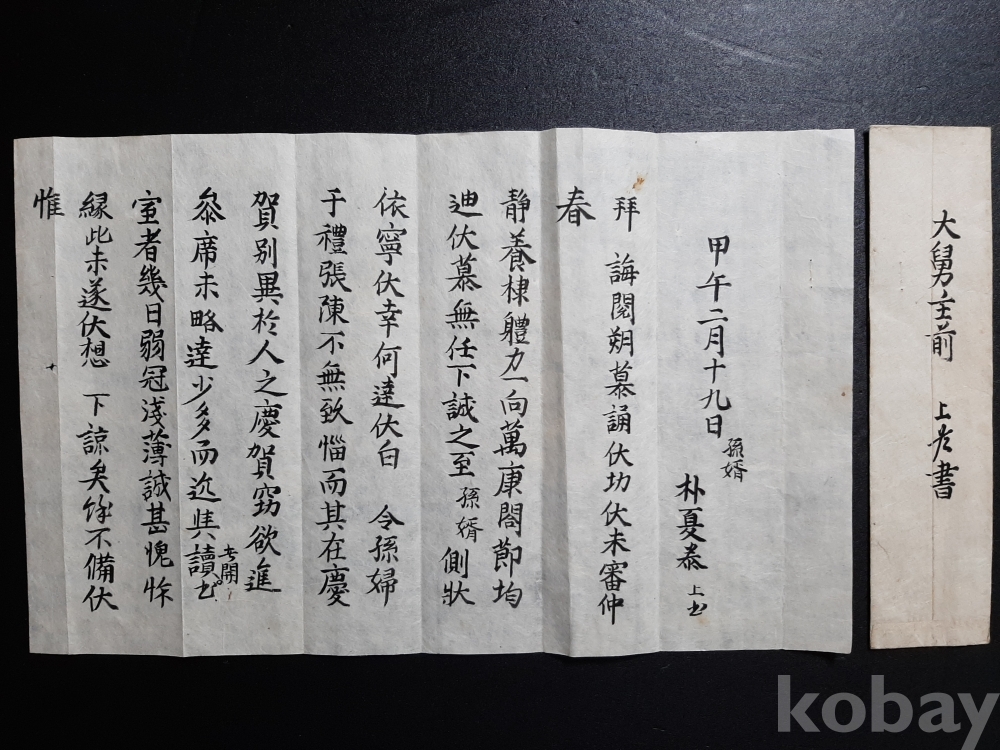 大舅主前 上書
甲午二月十九日
孫婿
朴夏泰 上书
拜 誨閱朔慕誦伏切伏未審仲
春
靜養棣體力一向萬康閤節均
迪伏慕無任下誠之至 孫婿 側狀
依寧伏幸何達伏白 令孫婦
于禮張陳不無致惱而其在慶
賀別異於人之慶賀窃欲進
叅席未略達少多而近與讀书
室者幾日弱冠淺薄誠甚愧怍
緣此未遂伏想 下諒矣餘不備伏
惟
kobay